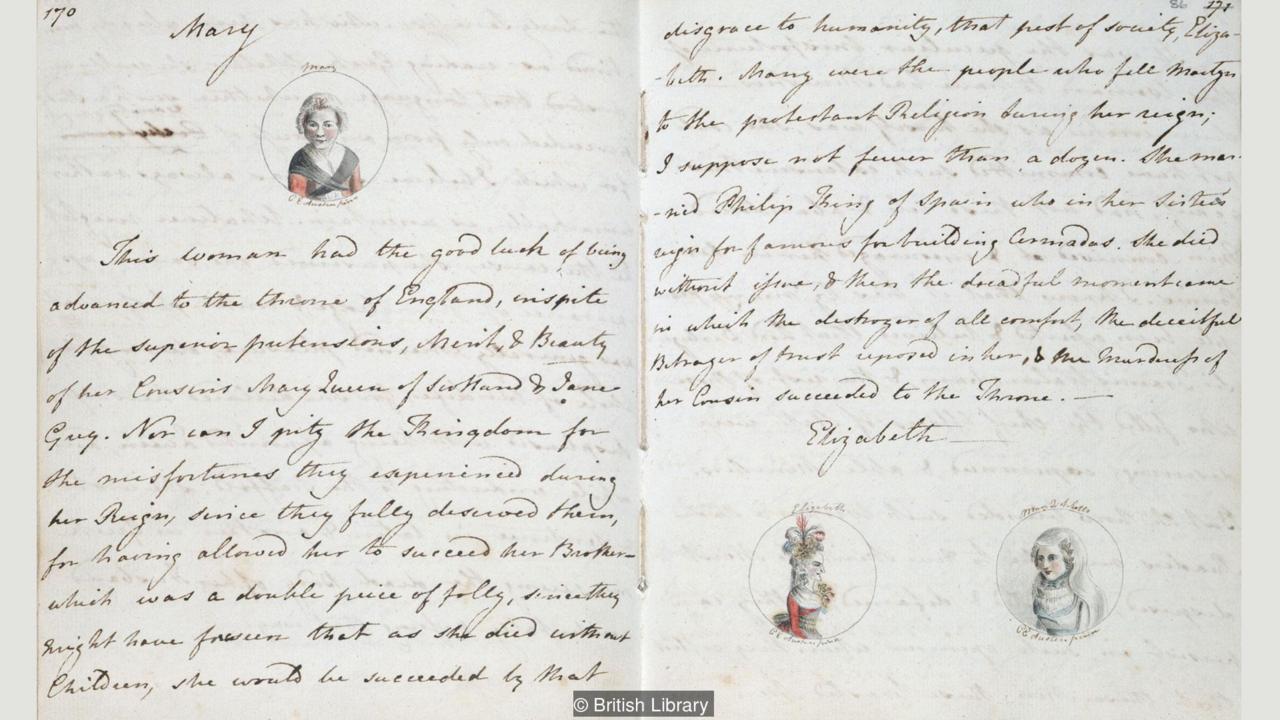 170
Mary
Mary
C E Austen pinx
This woman had the good luck of being
advanced to the throne of England, inspite
of the superior pretensions, Merit, & Beauty
of her Cousins Mary Queen of Scotland & Jane
Grey. Nor can I pity the Kingdom for
the misfortunes they experienced during
her Reign, since they fully deserved them,
for having allowed her to succeed her Brother-
which was a double peice of folly, since they
might have foreseen that as she died without
Children, she would be succeeded by that
86 171
disgrace to humanity, that pest of society, Eliza-
-beth. Many were the people who fell Martyrs
to the protestant Religion during her reign;
I suppose not fewer than a dozen. She mar-
-ried Philip King of Spain who in her Sister's
reign for famous for building Armadas. She died
without issue, & then the dreadful moment came
in which the destroyer of all comfort, the deceitful
Betrayer of trust reposed in her, & the Murderess of
her Cousin succeeded to the Throne. —
Elizabeth
Elizabeth
C E Austen pinx
Mary Q of Scots
C E Austen pinx
© British Library